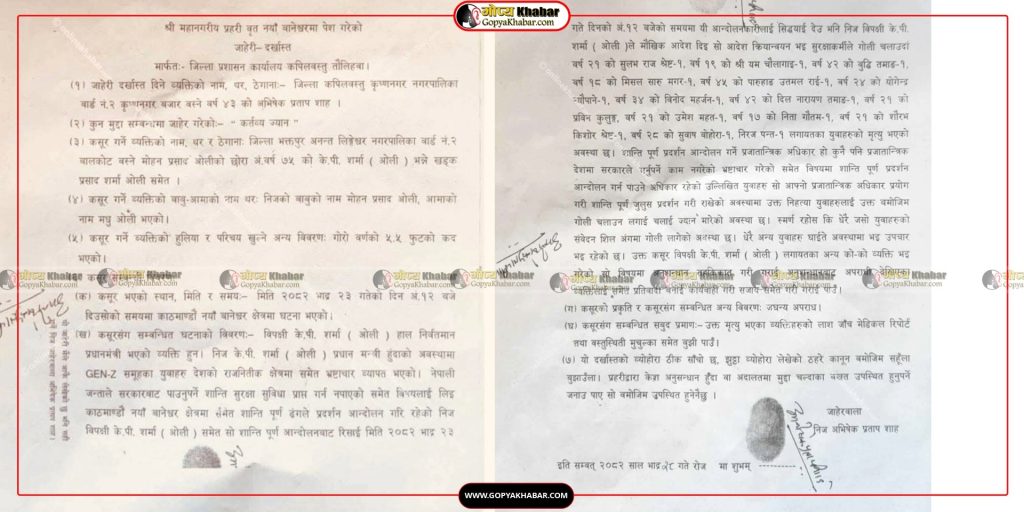 गोप्य Khabar
GopyaKhabar.com
श्री महानगरीय प्रहरी वृत नयाँ बानेश्वरमा पेश गरेको
जाहेरी- दर्खास्त
मार्फतः- जिल्ला प्रशासन कार्यालय कपिलवस्तु तौलिहवा।
(१) जाहेरी दर्खास्त दिने व्यक्तिको नाम, थर, ठेगानाः- जिल्ला कपिलवस्तु कृष्णनगर नगरपालिका
वार्ड नं.२ कृष्णनगर बजार बस्ने वर्ष ४३ को अभिषेक प्रताप शाह ।
(२) कुन मुद्दा सम्बन्धमा जाहेर गरेकोः- " कर्तव्य ज्यान "
(३) कसूर गर्ने व्यक्तिको नाम, थर र ठेगानाः जिल्ला भक्तपुर अनन्त लिङ्गेश्वर नगरपालिका वार्ड नं.२
बालकोट बस्ने मोहन प्रसाद ओलीको छोरा अं.वर्ष ७५ को के.पी. शर्मा ( ओली ) भन्ने खड्क
प्रसाद शर्मा ओली समेत ।
(४) कसूर गर्ने व्यक्तिको बाबु-आमाको नाम थरः निजको बाबुको नाम मोहन प्रसाद ओली, आमाको
नाम मधु ओली भएको।
(५) कसूर गर्ने व्यक्तिको हुलिया र परिचय खुल्ने अन्य विवरणः गोरो वर्णको ५.५ फुटको कद
भएको।
(६) कसूर सम्बन्धी
(क) कसूर भएको स्थान, मिति र समयः- मिति २०८२ भाद्र २३ गतेको दिन अं.१२ बजे
दिउसोको समयमा काठमाण्डौ नयाँ बानेश्वर क्षेत्रमा घटना भएको।
(ख) कसूरसंग सम्बन्धीत घटनाको विवरणः- विपक्षि के.पी. शर्मा ( ओली ) हाल निर्वतमान
प्रधानमंत्री भएको व्यक्ति हुन। निज के.पी. शर्मा ( ओली ) प्रधान मन्त्री हुंदाको अवस्थामा
GEN-Z समूहका युवाहरु देशको राजनितीक क्षेत्रमा समेत भ्रष्टाचार व्यापत भएको। नेपाली
जनताले सरकारबाट पाउनुपर्ने शान्ति सुरक्षा सुविधा प्राप्त गर्न नपाएको समेत बिषयलाई लिइ
काठमाण्डौ नयाँ बानेश्वर क्षेत्रमा समेत शान्ति पूर्ण ढंगले प्रदर्शन आन्दोलन गरि रहेको निज
विपक्षी के.पी. शर्मा ( ओली ) समेत सो शान्ति पूर्ण आन्दोलनबाट रिसाई मिति २०८२ भाद्र २३
गते दिनको अं.१२ बजेको समयमा यी आन्दोलनकारीलाई सिध्याई देउ भनि निज विपक्षी के.पी.
शर्मा ( ओली )ले मौखिक आदेश दिइ सो आदेश क्रियान्वयन भइ सुरक्षाकर्मीले गोली चलाउदा
वर्ष २१ को सुलभ राज श्रेष्ट-१, वर्ष १९ को श्री यम चौलागाइ-१, वर्ष ४२ को बुद्धि तमाङ-१,
वर्ष १८ को मिसल सारु मगर-१, वर्ष ४५ को पारुहाड उतमल राई-१, वर्ष २४ को योगेन्द्र
न्यौपाने-१, वर्ष ३४ को विनोद महर्जन-१, वर्ष ४२ को दिल नारायण तमाङ-१, वर्ष २१ को
प्रविभ कुलुङ्ग, वर्ष २१ को उमेश महत-१, वर्ष १७ को निता गौतम-१, वर्ष २१ को शौरभ
किशोर श्रेष्ट-१, वर्ष २८ को सुवाष वोहोरा-१, निरज पन्त-१ लगायतका युवाहरुको मृत्यु भएको
अवस्था छ। शान्ति पूर्ण प्रदर्शन आन्दोलन गर्ने प्रजातान्त्रिक अधिकार हो कुनै पनि प्रजातान्त्रिक
देशमा सरकारले गर्नुपर्ने काम नगरेको भ्रष्टाचार गरेको समेत विषयमा शान्ति पूर्ण प्रदर्शन
आन्दोलन गर्न पाउने अधिकार रहेको उल्लिखित युवाहरु सो आफ्नो प्रजातान्त्रिक अधिकार प्रयोग
गरी शान्ति पूर्ण जुलुस प्रदर्शन गरी राखेको अवस्थामा उक्त निहत्था युवाहरुलाई उक्त बमोजिम
गोली चलाउन लगाई चलाई ज्यान मारेको अवस्था छ। स्मर्ण रहोस कि धेरै जसो युवाहरुको
संवेदन शिल अंगमा गोली लागेको अवस्था छ। धेरै अन्य युवाहरु घाईते अवस्थामा भइ उपचार
भइ रहेको छ। उक्त कसूर विपक्षी के.पी. शर्मा ( ओली ) लगायतका अन्य को-को व्यक्ति भइ
गरेको सो विषयमा अनुशन्धान तहकिकात गरी अपराधी
व्यक्तिलाई समेत प्रतिवादी बनाई कार्यवाही गरी सजाय समेत गरी पाउँ।
(ग) कसूरको प्रकृति र कसूरसंग सम्बन्धित अन्य विवरणः जघन्य अपराध।
(घ) कसूरसंग सम्बन्धित सबुद प्रमाणः- उक्त मृत्यु भएका व्यक्तिहरुको लाश जाँच मेडिकल रिपोर्ट
तथा वस्तुस्थिती मुचुल्का समेत बुझी पाउँ।
(७) यो दर्खास्तको व्योहोरा ठीक साँचो छ, झुठ्ठा व्योहोरा लेखेको ठहरे कानून बमोजिम सहुँला
बुझाउँला। प्रहरीद्वारा केश अनुसन्धान हुँदा वा अदालतमा मुद्दा चल्दाका बखत उपस्थित हुनुपर्ने
जनाउ पाए सो बमोजिम उपस्थित हुनेनैछु ।
जाहेरवाला
निज अभिषेक प्रताप शाह
इति सम्बत् २०८२ साल भाद्र २८ गते रोज मा शुभम्
WWW.GOPYAKHABAR.COM